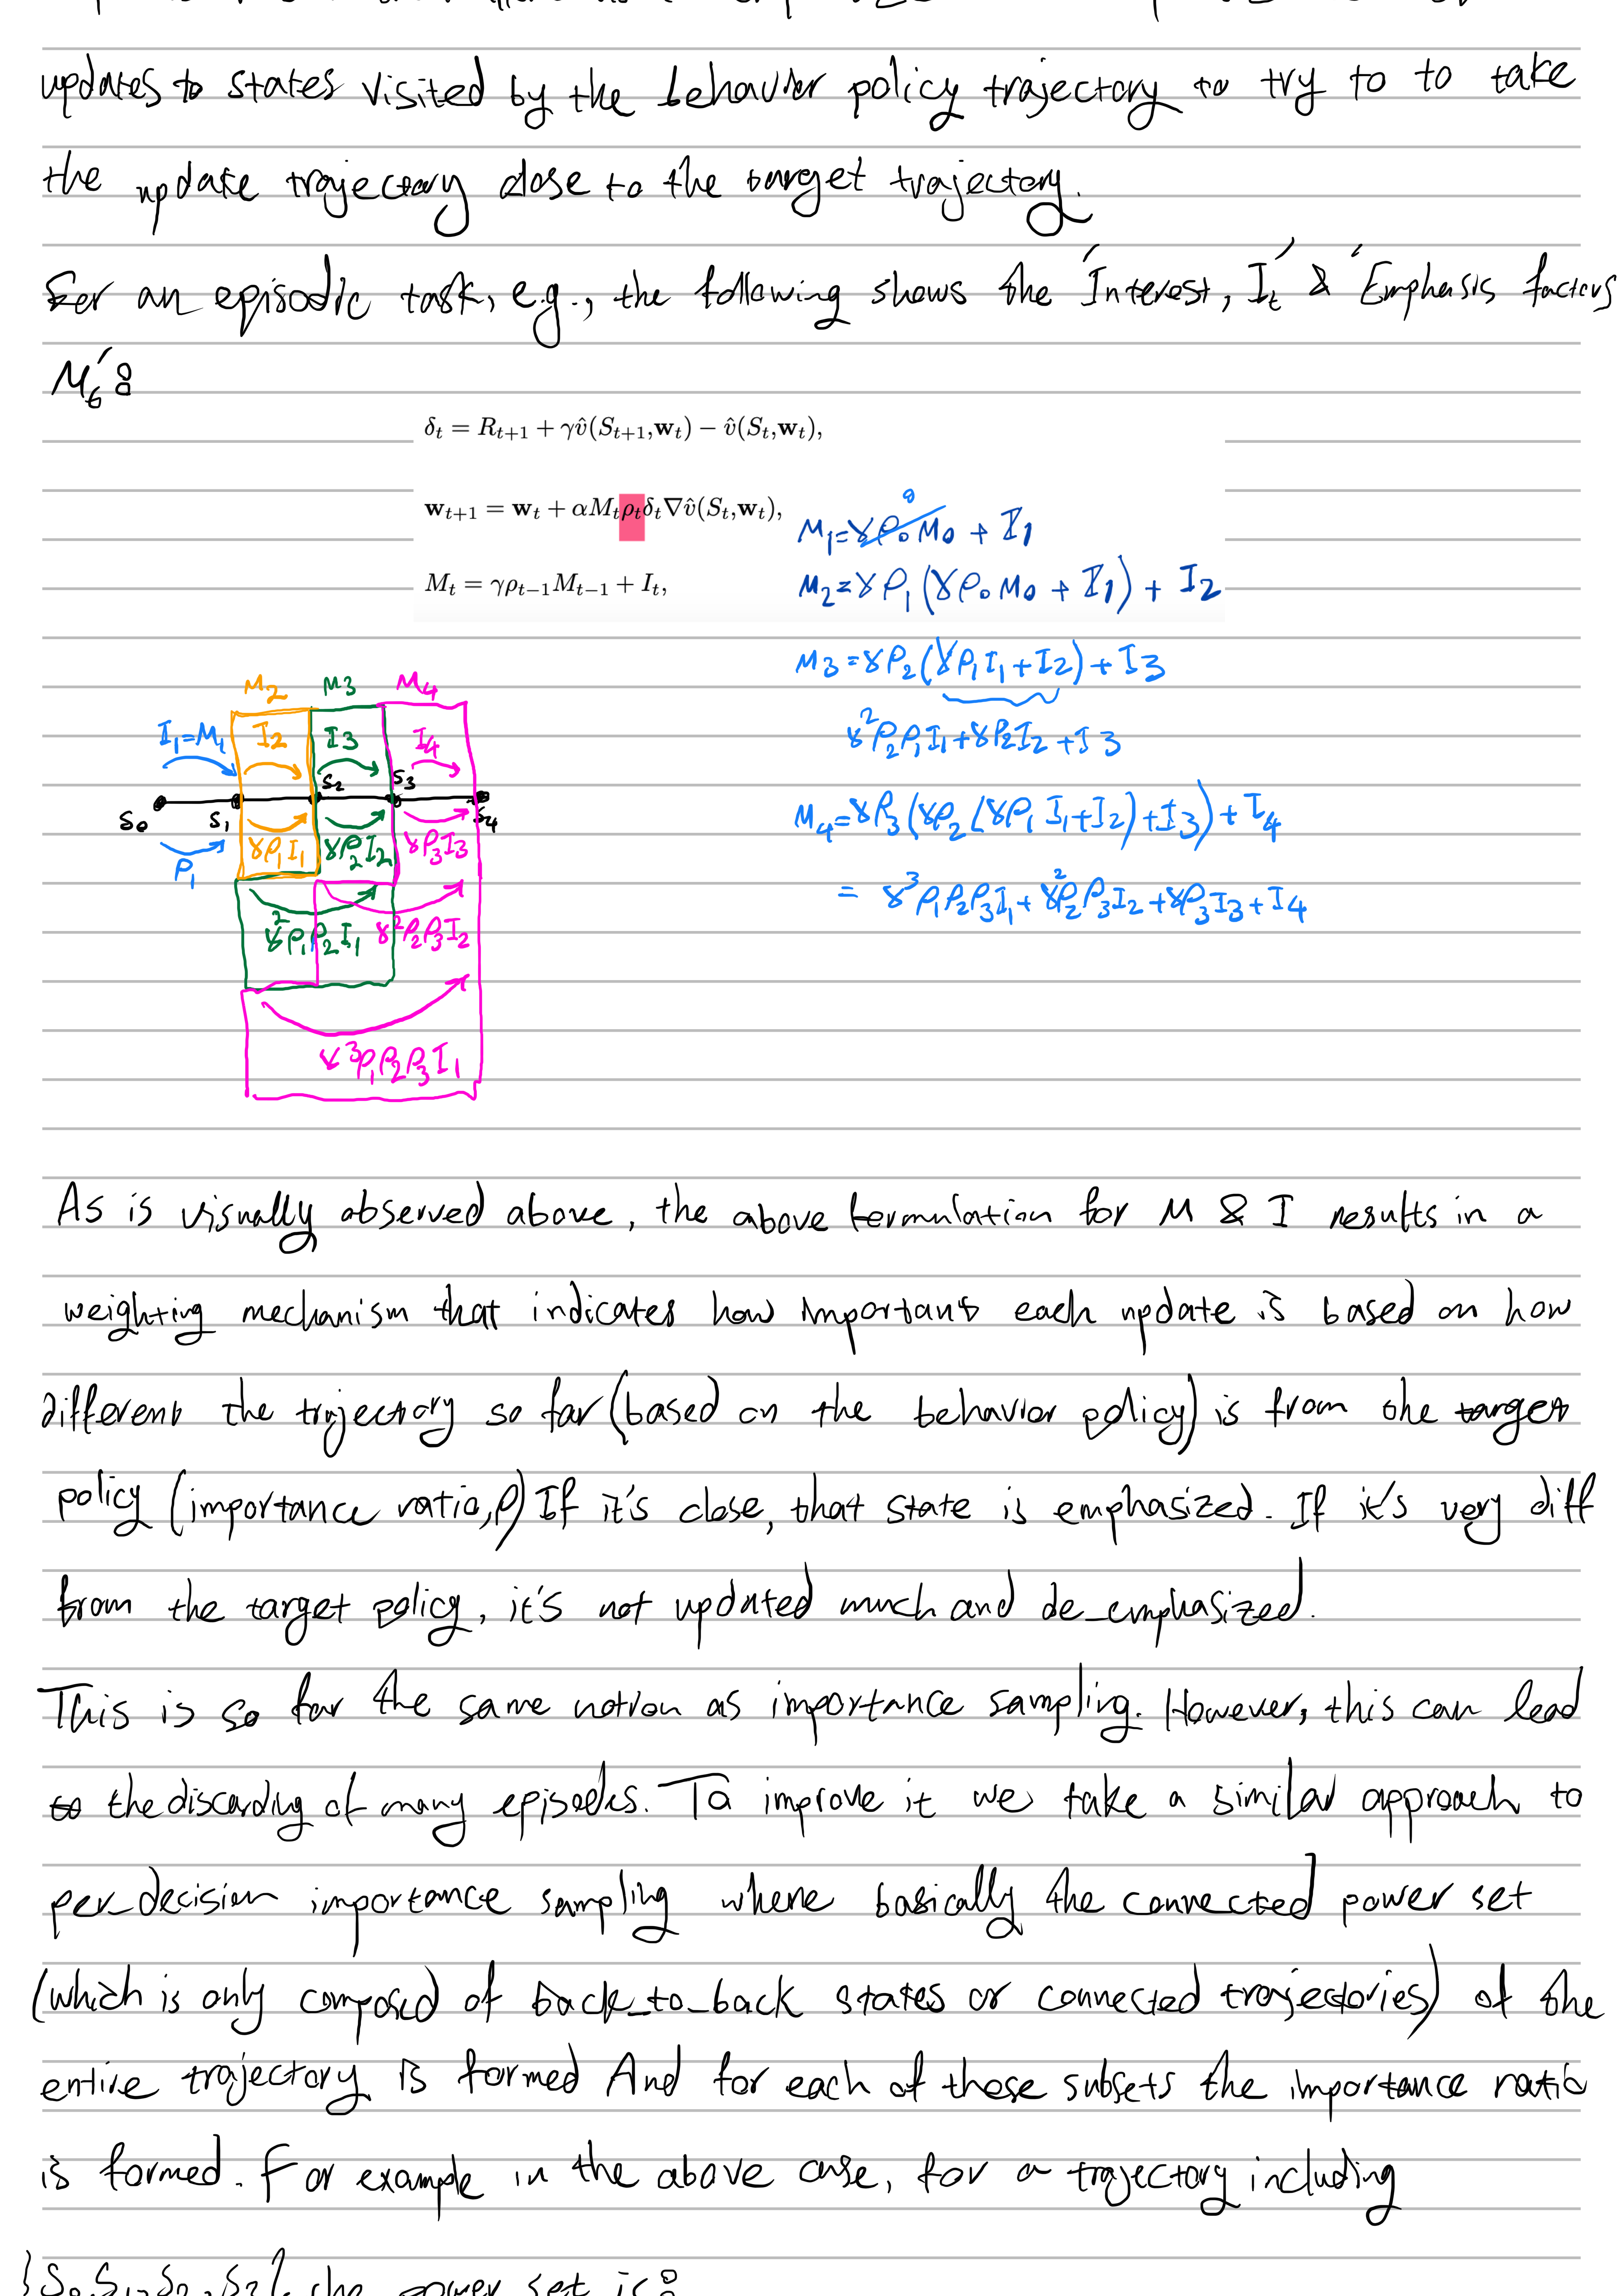 updates to states visited by the behavior policy trajectory to try to to take
the update trajectory close to the target trajectory.
For an episodic task, e.g., the following shows the 'Interest, I_t' & 'Emphasis factors
M_t':
δ_t = R_{t+1} + γv̂(S_{t+1},w_t) − v̂(S_t,w_t),
w_{t+1} = w_t + αM_tρ_tδ_t∇v̂(S_t,w_t),
M_t = γρ_{t−1}M_{t−1} + I_t,
M_1 = γρ_0M_0 + I_1
0
M_2 = γρ_1(γρ_0M_0 + I_1) + I_2
M_3 = γρ_2(γρ_1I_1 + I_2) + I_3
γ^2ρ_2ρ_1I_1 + γρ_2I_2 + I_3
M_4 = γρ_3(γρ_2(γρ_1I_1 + I_2) + I_3) + I_4
= γ^3ρ_1ρ_2ρ_3I_1 + γ^2ρ_2ρ_3I_2 + γρ_3I_3 + I_4
M_2 M_3 M_4
I_1=M_1 I_2 I_3 I_4
S_0 S_1 S_2 S_3 S_4
ρ_1 γρ_1I_1 γρ_2I_2 γρ_3I_3
γ^2ρ_1ρ_2I_1 γ^2ρ_2ρ_3I_2
γ^3ρ_1ρ_2ρ_3I_1
As is visually observed above, the above formulation for M & I results in a
weighting mechanism that indicates how important each update is based on how
different the trajectory so far (based on the behavior policy) is from the target
policy (importance ratio, ρ) If it's close, that state is emphasized. If it's very diff
from the target policy, it's not updated much and de_emphasized.
This is so far the same notion as importance sampling. However, this can lead
to the discarding of many episodes. To improve it we take a similar approach to
per_decision importance sampling where basically the connected power set
(which is only composed of back_to_back states or connected trajectories) of the
entire trajectory is formed And for each of these subsets the importance ratio
is formed. For example in the above case, for a trajectory including
the power set is: